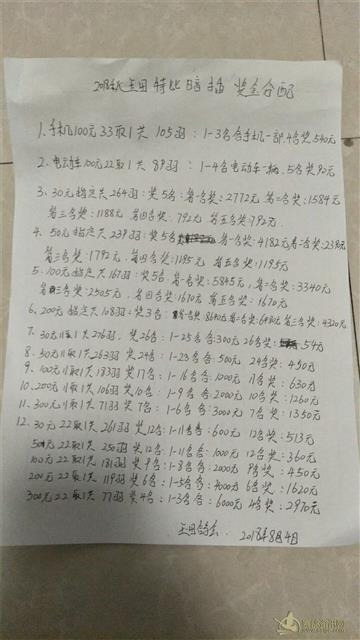 2018秋 特比 插 奖金分配
1、手机100元33取1共105羽：1-3名各手机一部.4名奖540元
2、电动车100元22取1共89羽：1-4名电动车一辆.5名奖90元
3、30元指定共264羽：奖5名：第一名奖：2772元.第二名奖：1584元
第三名奖：1188元.第四名奖：792元.第五名奖：792元.
4、50元指定共239羽：奖5名 第一名奖：4182元 第二名奖：2390元
第三名奖：1792元.第四名奖：1195元.第五名奖：1195元
5、100元指定共167羽：奖5名.第一名奖：5845元,第二名奖：3340元
第三名奖：2505元.第四名奖：1670元.第五名奖：1670元.
6、200元指定共108羽：奖3名：第一名奖8640元 第二名奖：6480元.第三名奖：4320元
7、30元11取1共276羽.奖26名：1-25名各：300元 26名奖： 54元
8、30元11取1共263羽.奖24名：1-23名各：500元 24名奖：450元
9、100元11取1共183羽奖17名：1-16名各：1000元 17名奖：630元
10、200元11取1共106羽奖10名：1-9名各：2000元 10名奖：1260元
11、300元11取1共71羽奖7名：1-6名各：3000元 7名奖：1350元
12、30元22取1共261羽奖12名：1-11名各：600元 12名奖：513元
50元22取1共250羽奖12名：1-11名各：1000元 12名奖：360元
100元22取1共181羽奖9名：1-8名各：2000元 9名奖：450元
200元22取1共119羽奖6名：1-5名各：4000元 6名奖：1620元
300元22取1共77羽奖4名：1-3名各：6000元 4名奖：2970元
2018年8月4日